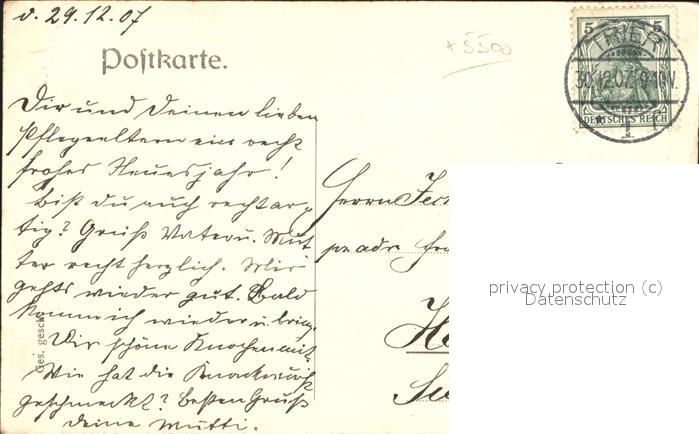 d. 29.12.07
Postkarte.
+ 5500
5 5
TRIER
30.12.07. 9-10V.
* 1 f
DEUTSCHES REICH
Dir und Deinen lieben
Pflegeeltern ein recht
frohes Neuesjahr!
Bist du auch recht ar-
tig? Gruß Vater u. Mut
ter recht herzlich. Mir
gehts wieder gut. Bald
komme ich wieder u. bring
Dir schöne Knochen mit.
Wie hat die Knackwurst
geschmeckt? Besten Gruß
deine Mutti.
Ges. gesch
Herrn
pr adr
privacy protection (c)
Datenschutz